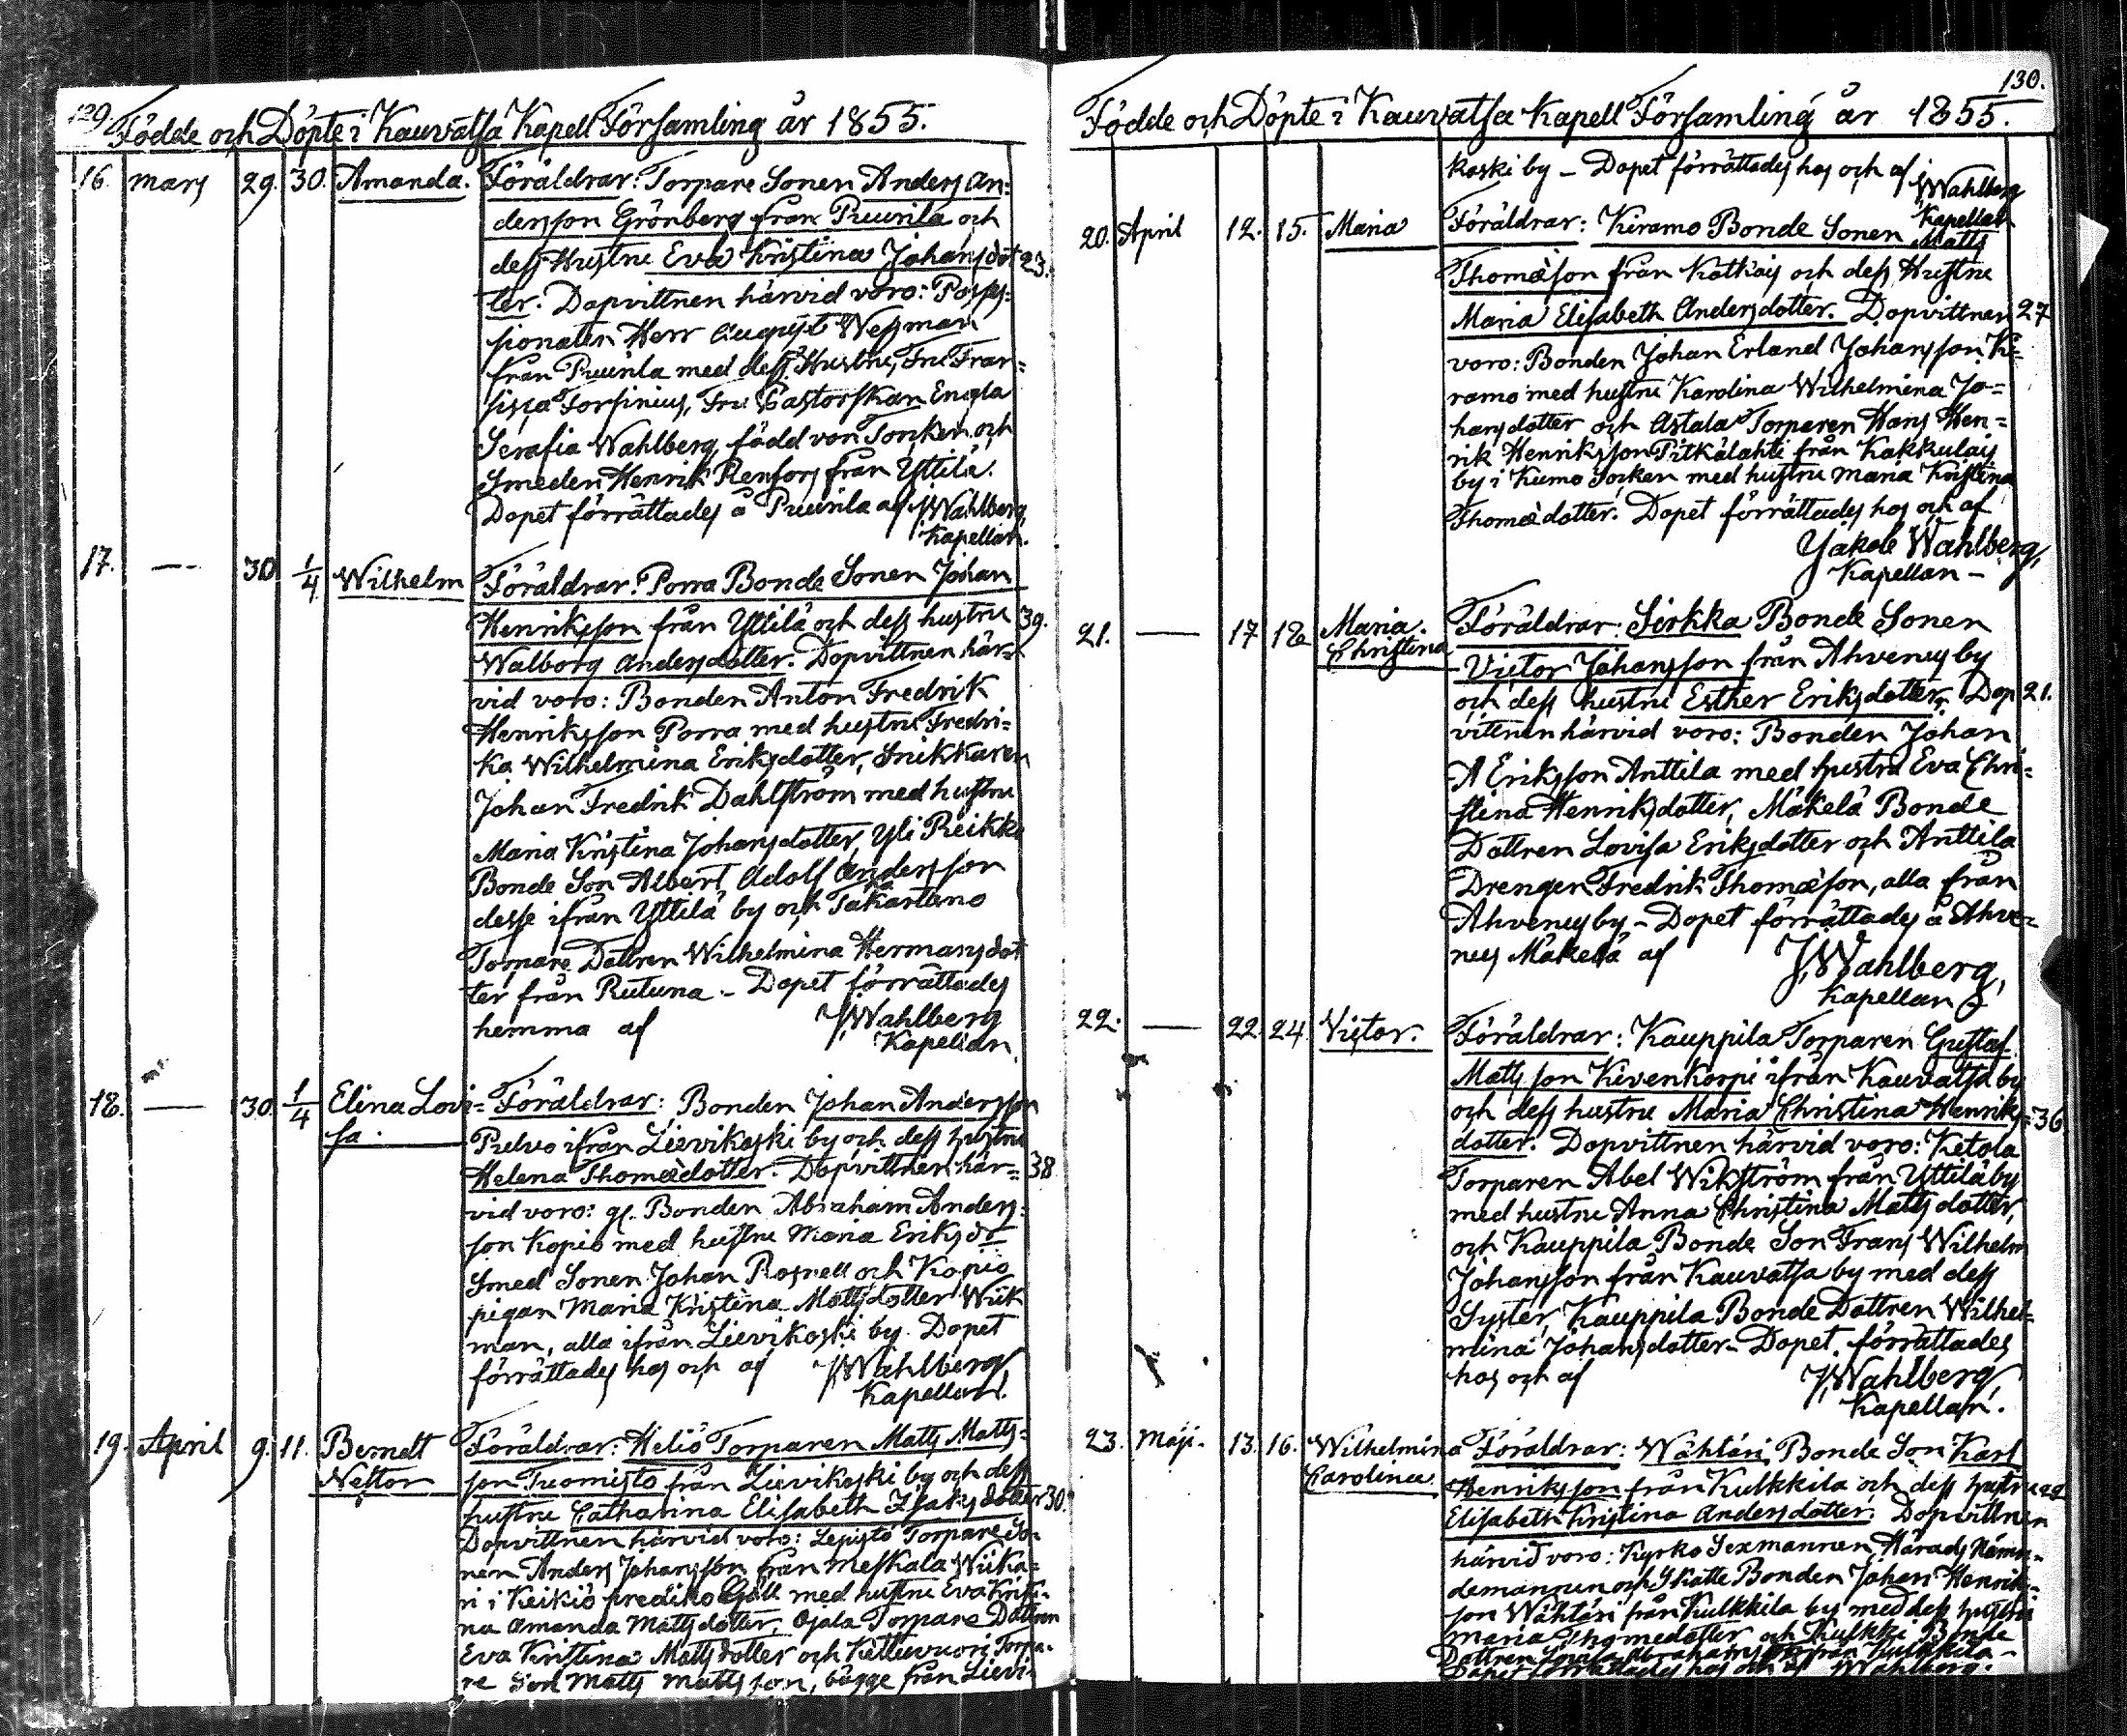 129.
Födde och Döpte i Kauvatsa Kapell Församling år 1855.
16. Mars 29. 30. Amanda. Föräldrar: Torpare Sonen Anders An=
dersson Grönberg från Puurila och
dess Hustru Eva Kristina Johansdot 23.
ter. Dopvittnen härvid voro: Posses=
sionaten Herr August Wessman
från Puurila med dess Hustru, Fru Fran=
siska Forsinius, Fru Pastorskan Engla
Serafia Wahlberg, född von Tonken, och
Smeden Henrik Renfors från Yttilä.
Dopet förrättades å Puurila af JWahlberg,
Kapellan.
17. — 30 1/4 Wilhelm Föräldrar: Porra Bonde Sonen Johan
Henriksson från Yttilä och dess hustru 39.
Walborg Andersdotter. Dopvittnen här=
vid voro: Bonden Anton Fredrik
Henriksson Porra med hustru Fredri=
ka Wilhelmina Eriksdotter, Snikkaren
Johan Fredrik Dahlström med hustru
Maria Kristina Johansdotter, Yli Reikko
Bonde Son Albert Adolf Andersson
desse ifrån Yttilä by och Takartano
Torpare Dottren Wilhelmina Hermansdot
ter från Rutuna. – Dopet förrättades
hemma af JWahlberg
Kapellan.
18. — 30. 1/4 Elina Lovi= Föräldrar: Bonden Johan Andersson
sa. Pulvo ifrån Lievikoski by och dess hustru
Helena Thomædotter. Dopvittnen här= 38
vid voro: gl. Bonden Abraham Anders=
son Kopio med hustru Maria Eriksdr
Smed Sonen Johan Rosnell och Kopio
pigan Maria Kristina Mattsdotter Wiik
man, alla ifrån Lievikoski by. Dopet
förrättades hos och af JWahlberg
Kapellan.
19. April 9. 11. Berndt Föräldrar: Heliö Torparen Matts Matts=
Nestor son Tuomisto från Lievikoski by och dess
hustru Catharina Elisabeth Isaksdotter 30.
Dopvittnen härvid voro: Lepistö Torpare So=
nen Anders Johansson från Meskala Wiika=
ri i Keikiö prediko Gäll med hustru Eva Kristi=
na Amanda Mattsdotter, Ojala Torpare Dottren
Eva Kristina Mattsdotter och Torpa=
re Son Matts Mattsson, bägge från Lievi=
130.
Födde och Döpte i Kauvatsa Kapell Församling år 1855.
koski by – Dopet förrättades hos och af JWahlberg
Kapellan
20. April 12. 15. Maria Föräldrar: Kiramo Bonde Sonen Matts
Thomæson från Katkais och dess Hustru
Maria Elisabeth Andersdotter. Dopvittnen 27
voro: Bonden Johan Erland Johansson Ki=
ramo med hustru Karolina Wilhelmina Jo=
hansdotter och Astala Torparen Hans Hen=
rik Henriksson Pitkälahti från Kakkulais
by i Kumo Socken med hustru Maria Kristina
Thomædotter. Dopet förrättades hos och af
Jakob Wahlberg,
Kapellan –
21. — 17 18 Maria Föräldrar: Sirkka Bonde Sonen
Christina Victor Johansson från Ahvenus by
och dess hustru Esther Eriksdotter. Dop 21.
vittnen härvid voro: Bonden Johan
A Eriksson Anttila med hustru Eva Chri=
stina Henriksdotter, Mäkelä Bonde
Dottren Lovisa Eriksdotter och Anttila
Drengen Fredrik Thomæson, alla från
Ahvenus by – Dopet förrättades å Ahve=
nus Mäkelä af JWahlberg,
Kapellan
22. — 22. 24. Victor. Föräldrar: Kauppila Torparen Gustaf
Matts son Kivenkorpi ifrån Kauvatsa by
och dess hustru Maria Christina Henriks= 36
dotter. Dopvittnen härvid voro: Ketola
Torparen Abel Wikström från Yttilä by
med hustru Anna Christina Mattsdotter,
och Kauppila Bonde Son Frans Wilhelm
Johansson från Kauvatsa by med dess
Syster, Kauppila Bonde Dottren Wilhel=
mina Johansdotter – Dopet förrättades
hos och af JWahlberg
Kapellan.
23. Maji. 13. 16. Wilhelmina Föräldrar: Wähtäri Bonde Son Karl
Carolina Henriksson från Kulkkila och dess hustru
Elisabeth Kristina Andersdotter. Dopvittnen
härvid voro: Kyrko Sexmannen, Härads Näm=
demannen och Skatte Bonden Johan Henriks=
son Wähtäri från Kulkkila by med dess hustru
Maria Thomedotter och Kulkki Bonde
Dottren Lovisa från Kulkkila –
Dopet förrättades hos och af Wahlberg.